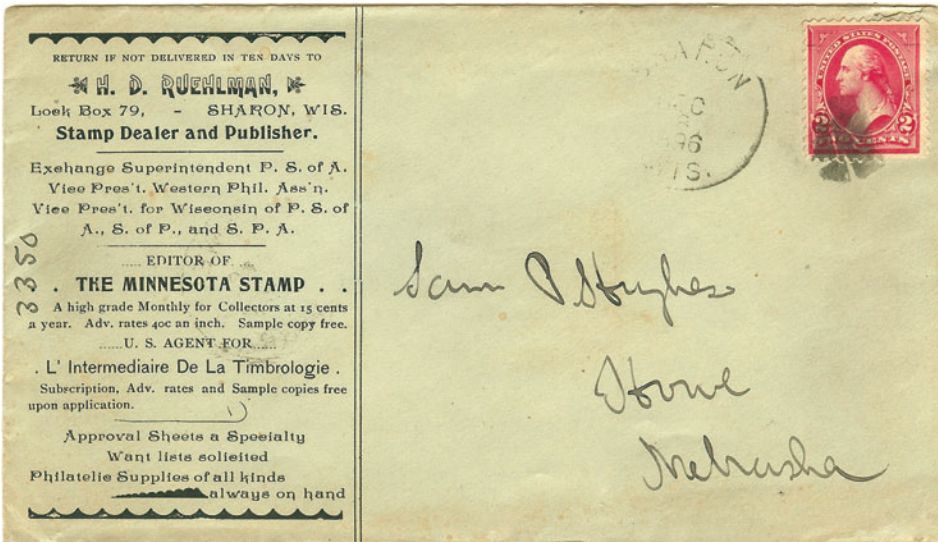 RETURN IF NOT DELIVERED IN TEN DAYS TO
H. D. RUEHLMAN,
Lock Box 79, - SHARON, WIS.
Stamp Dealer and Publisher.
Exchange Superintendent P. S. of A.
Vice Pres't. Western Phil. Ass'n.
Vice Pres't. for Wisconsin of P. S. of
A., S. of P., and S. P. A.
EDITOR OF
. THE MINNESOTA STAMP . .
A high grade Monthly for Collectors at 15 cents
a year. Adv. rates 40c an inch. Sample copy free.
U. S. AGENT FOR
. L' Intermediaire De La Timbrologie .
Subscription, Adv. rates and Sample copies free
upon application.
Approval Sheets a Specialty
Want lists solicited
Philatelic Supplies of all kinds
always on hand
3350
SHARON
DEC
96
WIS.
UNITED STATES POSTAGE
2 2
Sam P Hughes
Howe
Nebraska